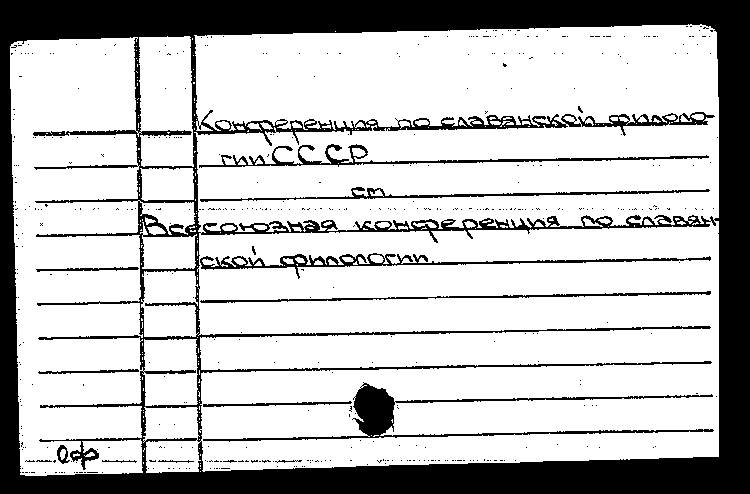 Конференция по славянской филоло-
гии СССР
см.
Всесоюзная конференция по славян-
ской филологии.